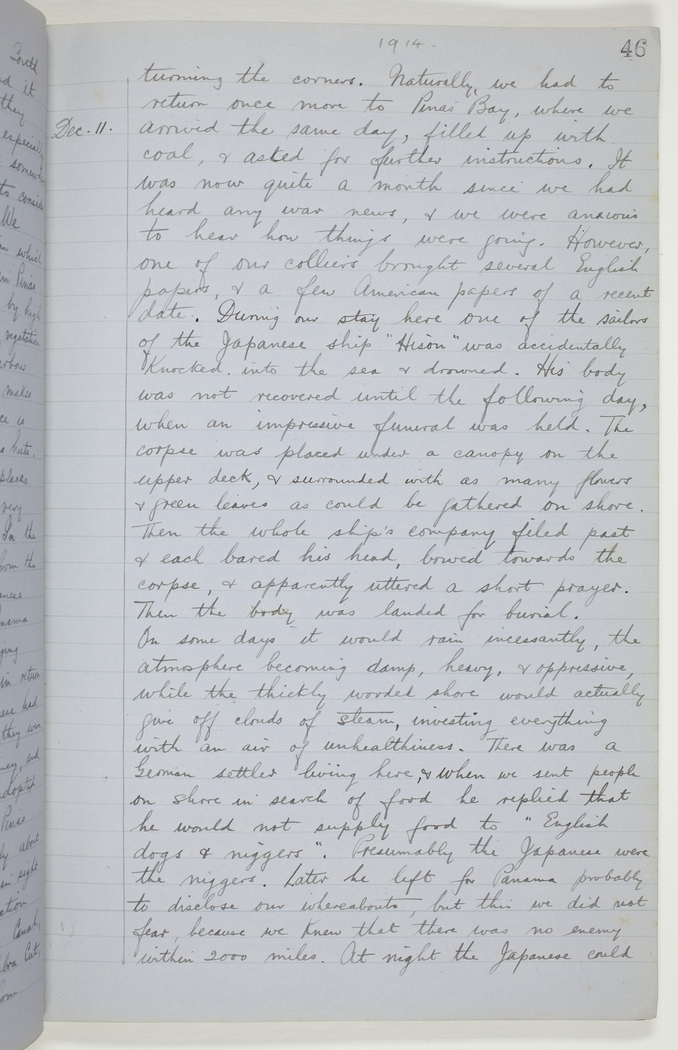 1914.
46
turning the corners. Naturally, we had to
return once more to Pinas Bay, where we
Dec. 11. arrived the same day, filled up with
coal, & asked for further instructions. It
was now quite a month since we had
heard any war news, & we were anxious
to hear how things were going. However,
one of our colliers brought several English
papers, & a few American papers of a recent
date. During our stay here one of the sailors
of the Japanese ship "Hison" was accidentally
knocked into the sea & drowned. His body
was not recovered until the following day,
when an impressive funeral was held. The
corpse was placed under a canopy on the
upper deck, & surrounded with as many flowers
& green leaves as could be gathered on shore.
Then the whole ship's company filed past
& each bared his head, bowed towards the
corpse, & apparently uttered a short prayer.
Then the body was landed for burial.
On some days it would rain incessantly, the
atmosphere becoming damp, heavy, & oppressive,
while the thickly wooded shore would actually
give off clouds of steam, investing everything
with an air of unhealthiness. There was a
German settler living here, & when we sent people
on shore in search of food he replied that
he would not supply food to "English
dogs & niggers". Presumably the Japanese were
the niggers. Later he left for Panama probably
to disclose our whereabouts, but this we did not
fear, because we knew that there was no enemy
within 2000 miles. At night the Japanese could